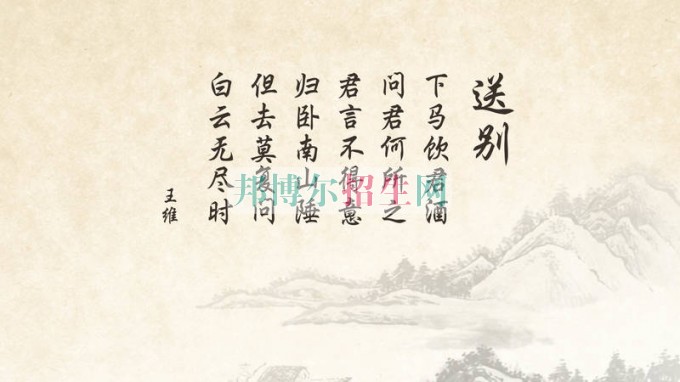 送别
下马饮君酒
问君何所之
君言不得意
归卧南山陲
但去莫复问
白云无尽时
王维
邦博尔招生网